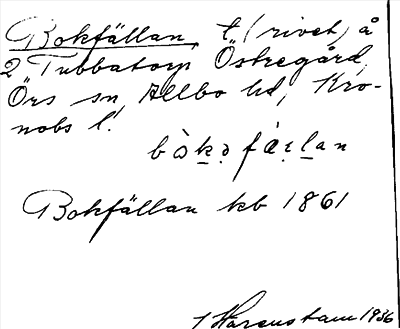 Bokfällan, t (rivet) å
2 Tubbatorp Östregård,
Örs sn, Allbo hd, Kro-
nobs l.
bòkə fæ̀lan
Bokfällan kb 1861
1 Harenstam 1936